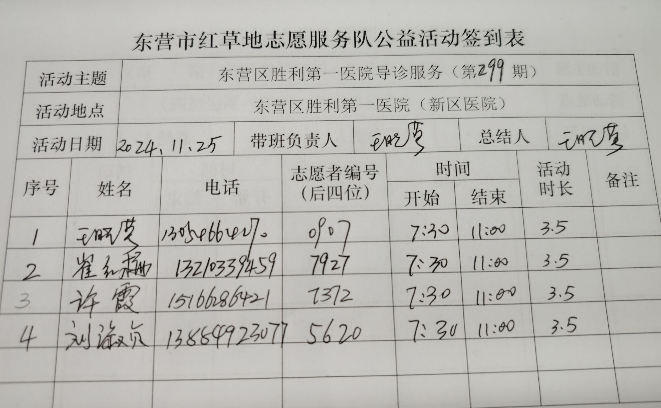 东营市红草地志愿服务队公益活动签到表
活动主题 东营区胜利第一医院导诊服务（第299期）
活动地点 东营区胜利第一医院（新区医院）
活动日期 2024.11.25 带班负责人 总结人
序号 姓名 电话 志愿者编号（后四位） 时间 开始 结束 活动时长 备注
1 13054664270 0907 7:30 11:00 3.5
2 崔 13210339459 7927 7:30 11:00 3.5
3 许霞 15166286421 7372 7:30 11:00 3.5
4 刘淑贞 13854923077 5620 7:30 11:00 3.5